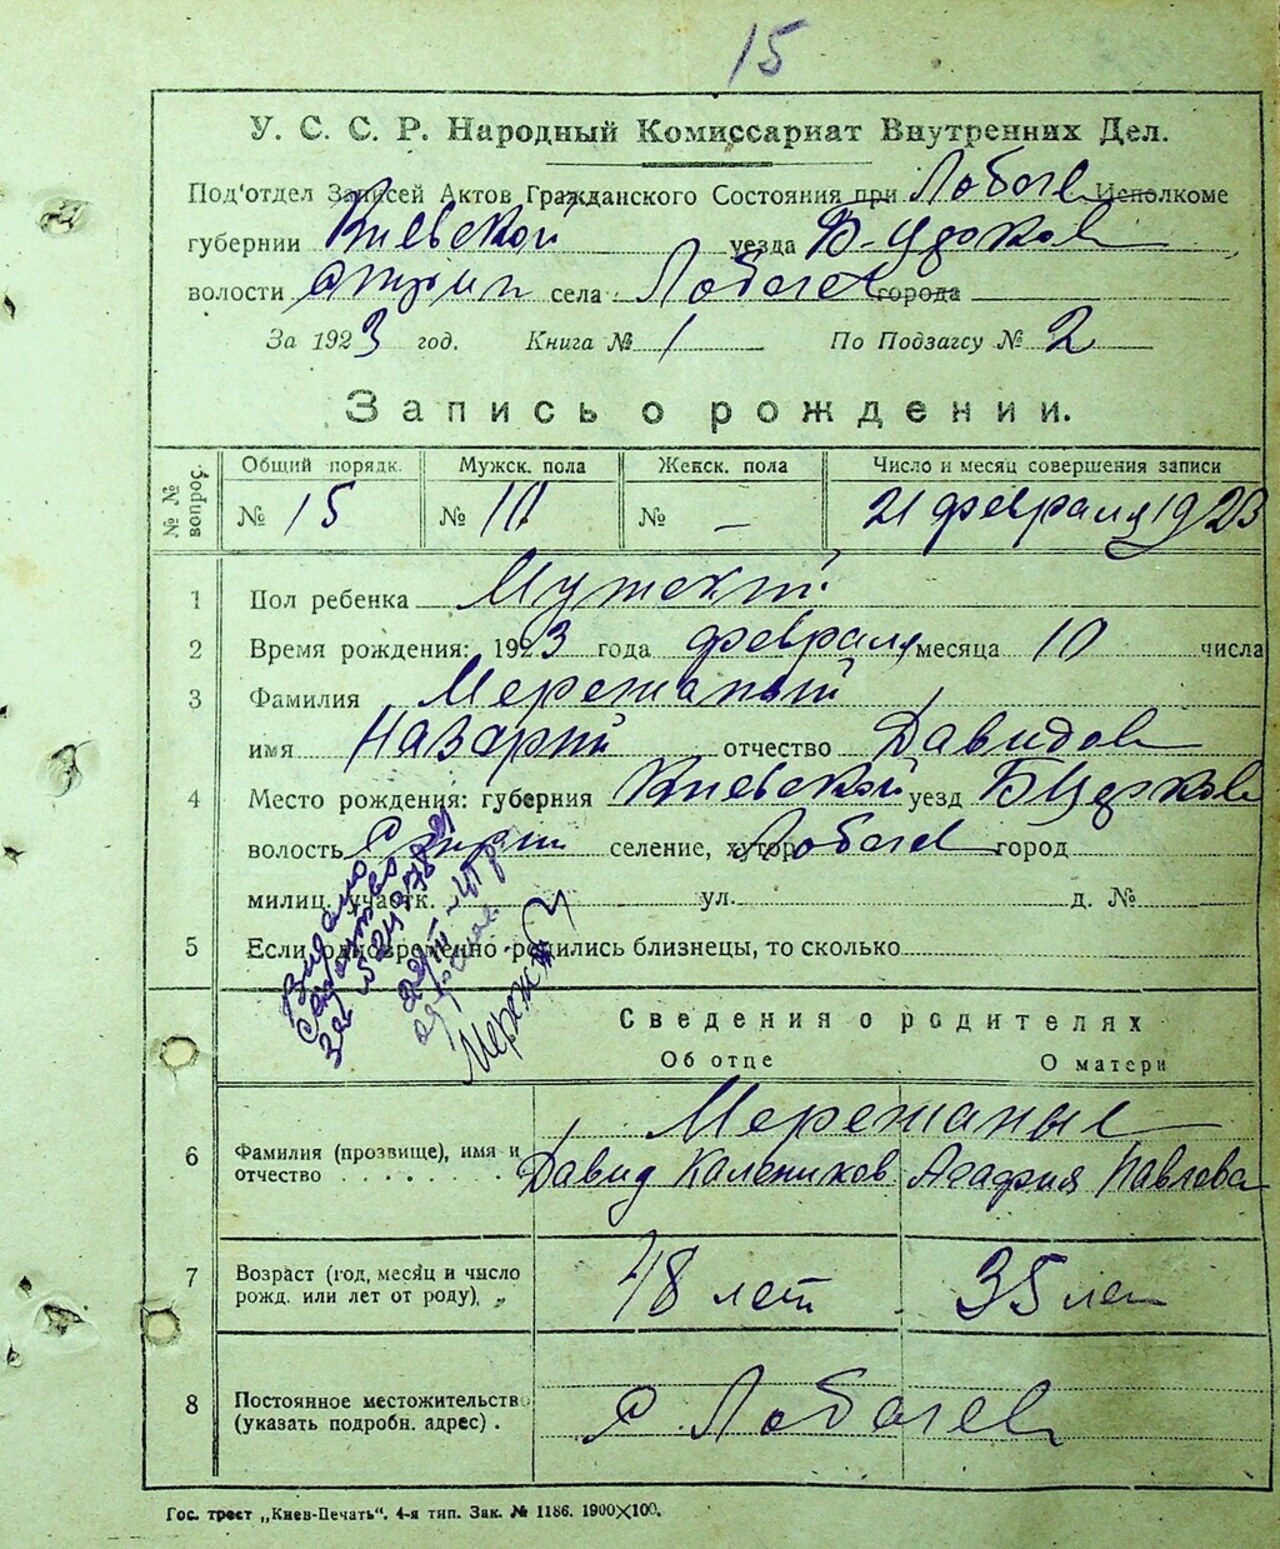 15
У. С. С. Р. Народный Комиссариат Внутренних Дел.
Под'отдел Записей Актов Гражданского Состояния при Лобачев Исполкоме
губернии Киевской уезда Б-Церков
волости села Лобачев города
За 1923 год. Книга № 1 По Подзагсу № 2
Запись о рождении.
№ № вопрос.
Общий порядк. Мужск. пола Женск. пола Число и месяц совершения записи
№ 15 № 10 № - 21 февраля 1923
1 Пол ребенка Мужский
2 Время рождения: 1923 года февраля месяца 10 числа
3 Фамилия Мережаный
имя Назарий отчество Давидов
4 Место рождения: губерния Киевской уезд БЦерков
волость селение, хутор Лобачев город
милиц. участк. ул. д. №
5 Если одновременно родились близнецы, то сколько
Видано
Сведения о родителях
Об отце О матери
Мережаные
6 Фамилия (прозвище), имя и отчество Давид Калеников Агафия Павлова
7 Возраст (год, месяц и число рожд. или лет от роду) 48 лет 35 лет
8 Постоянное местожительство (указать подробн. адрес) с. Лобачев
Гос. трест „Киев-Печать“. 4-я тип. Зак. № 1186. 1900×100.